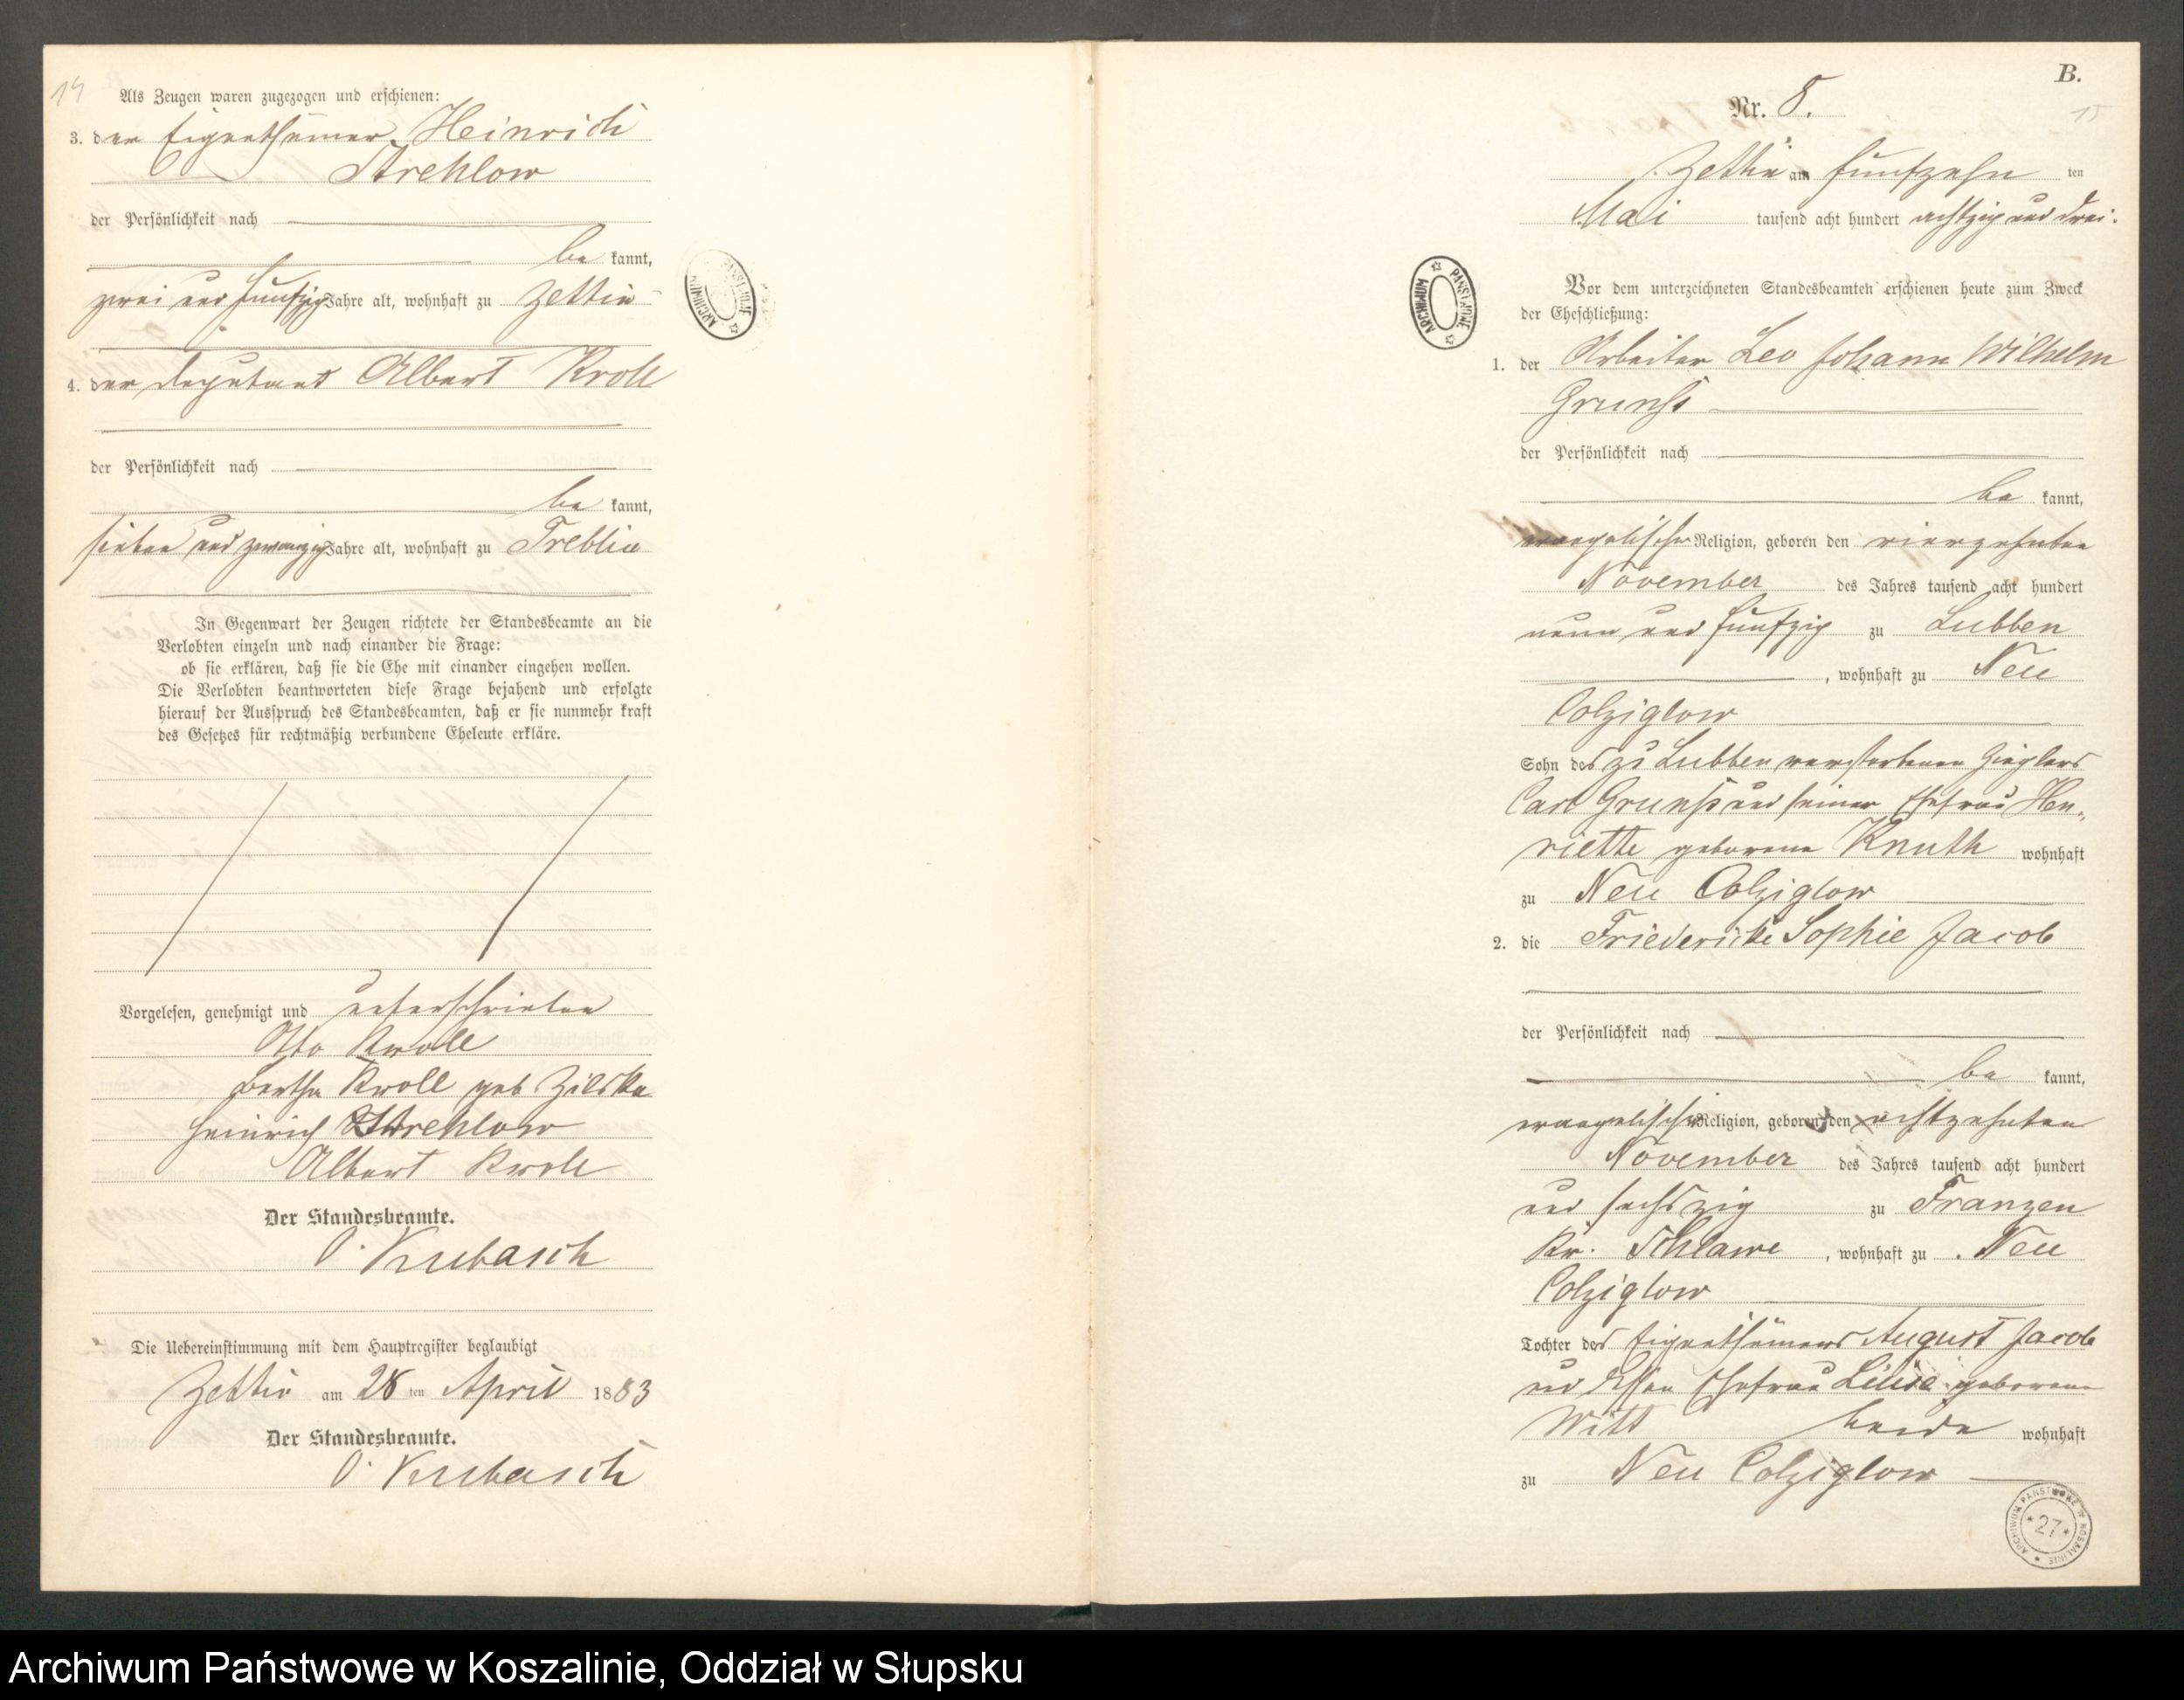 14
Als Zeugen waren zugezogen und erschienen:
3. der Eigenthümer Heinrich
Strehlow
der Persönlichkeit nach
be kannt,
zwei und funfzig Jahre alt, wohnhaft zu Zettin
4. der Deputant Albert Kroll
der Persönlichkeit nach
be kannt,
sieben und zwanzig Jahre alt, wohnhaft zu Treblin
In Gegenwart der Zeugen richtete der Standesbeamte an die
Verlobten einzeln und nach einander die Frage:
ob sie erklären, daß sie die Ehe mit einander eingehen wollen.
Die Verlobten beantworteten diese Frage bejahend und erfolgte
hierauf der Ausspruch des Standesbeamten, daß er sie nunmehr kraft
des Gesetzes für rechtmäßig verbundene Eheleute erkläre.
Vorgelesen, genehmigt und unterschrieben
Otto Kroll
Bertha Kroll geb Zilske
Heinrich Strehlow
Albert Kroll
Der Standesbeamte.
O. Kubasch
Die Uebereinstimmung mit dem Hauptregister beglaubigt
Zettin am 28 ten April 1883
Der Standesbeamte.
O. Kubasch
ARCHIWUM PAŃSTWOWE
B.
15
Nr. 8.
Zettin am funfzehn ten
Mai tausend acht hundert achtzig und drei.
Vor dem unterzeichneten Standesbeamten erschienen heute zum Zweck
der Eheschließung:
1. der Arbeiter Leo Johann Wilhelm
Grunst
der Persönlichkeit nach
be kannt,
evangelischer Religion, geboren den vierzehnten
November des Jahres tausend acht hundert
neun und funfzig zu Lubben
, wohnhaft zu Neu
Colziglow
Sohn des zu Lubben verstorbenen Zieglers
Carl Grunst und seiner Ehefrau Hen-
riette geborene Knuth wohnhaft
zu Neu Colziglow
2. die Friedericke Sophie Jacob
der Persönlichkeit nach
be kannt,
evangelischer Religion, geboren den achtzehnten
November des Jahres tausend acht hundert
und sechszig zu Franzen
Kr. Schlawe , wohnhaft zu Neu
Colziglow
Tochter des Eigenthümers August Jacob
und dessen Ehefrau Luise geborene
Witt beide wohnhaft
zu Neu Colziglow
ARCHIWUM PAŃSTWOWE
ARCHIWUM PAŃSTWOWE W KOSZALINIE
* 27 *
Archiwum Państwowe w Koszalinie, Oddział w Słupsku